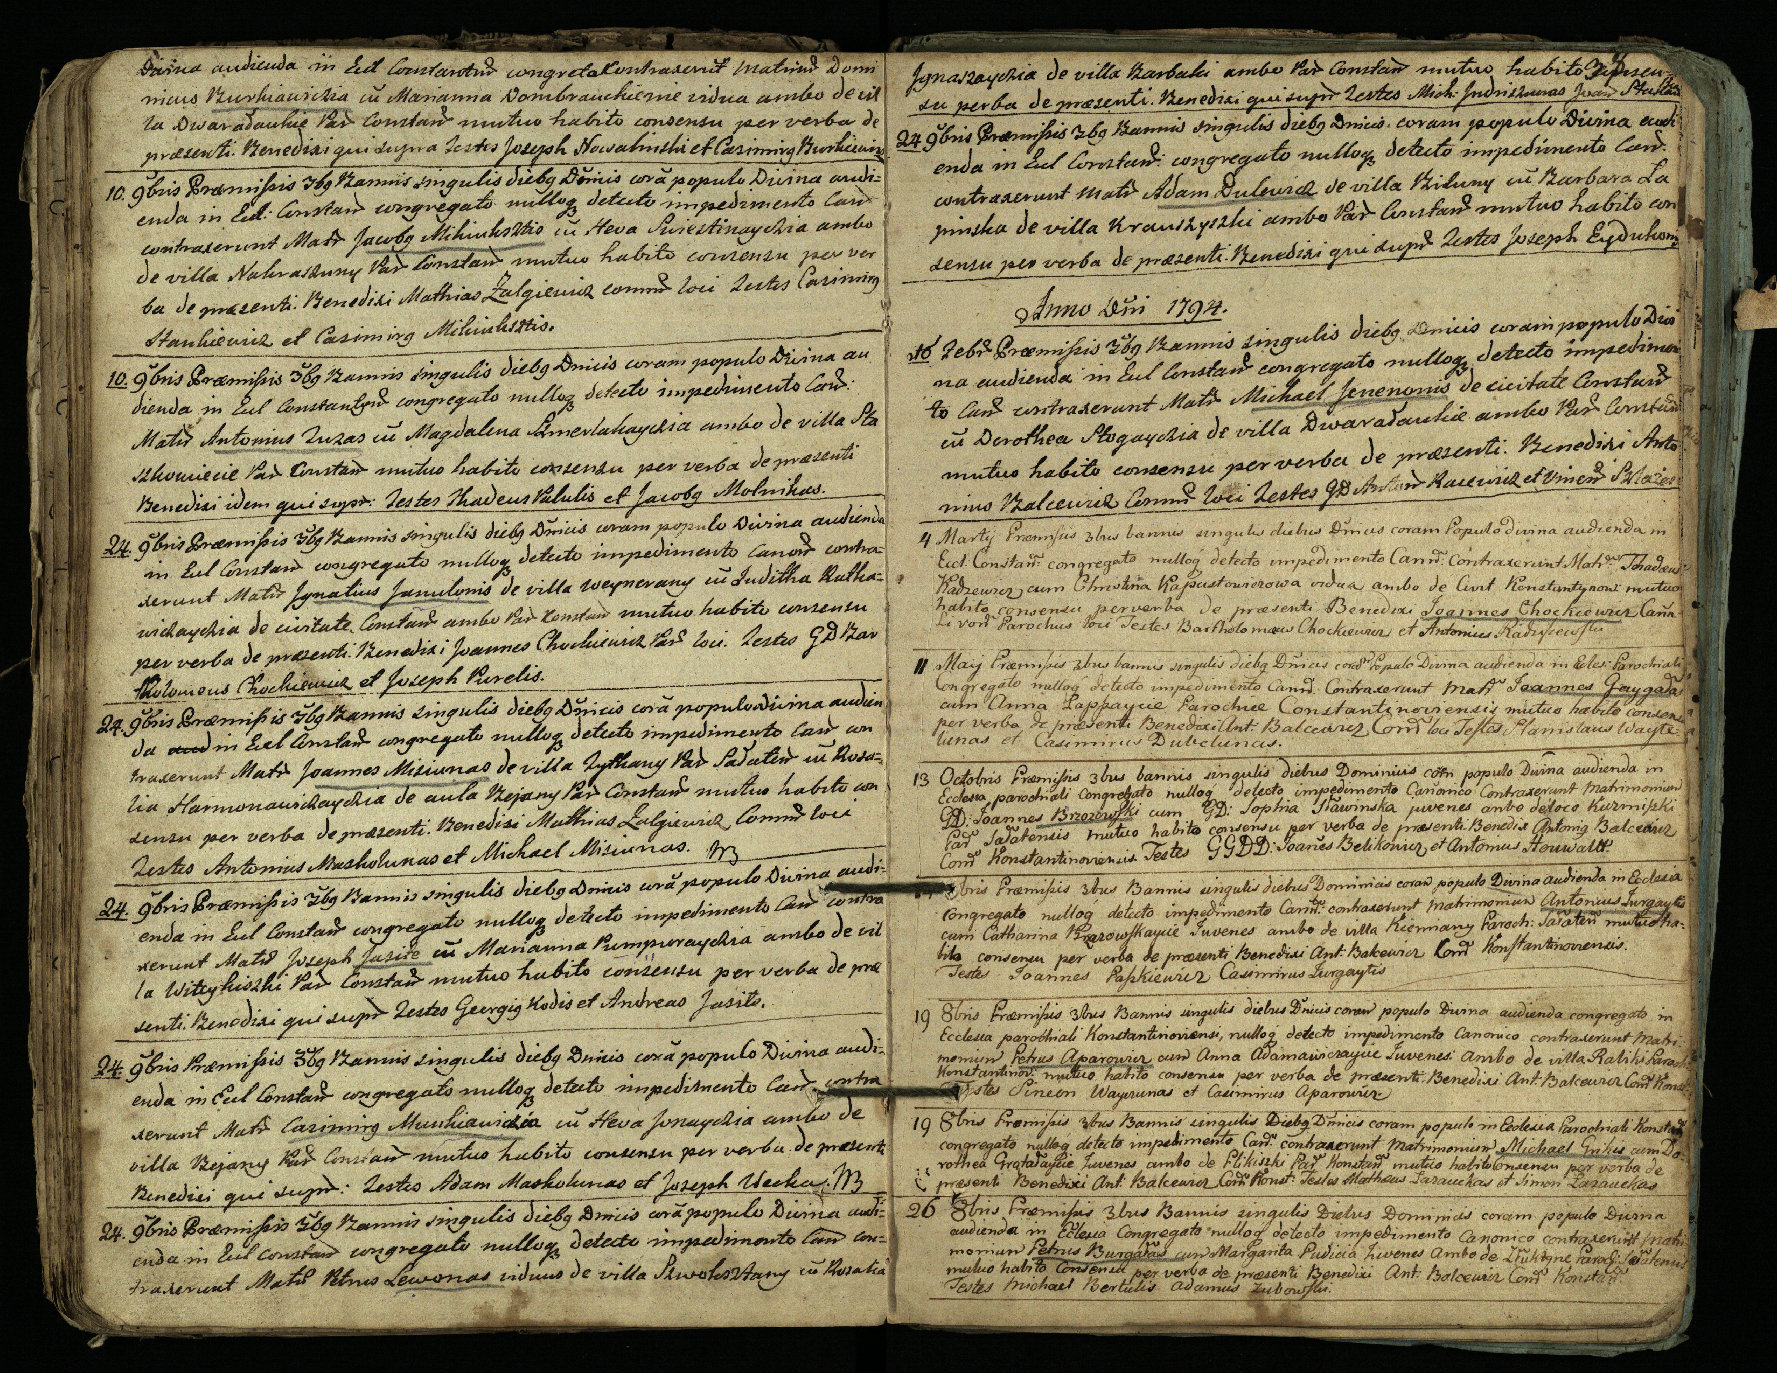 Divina audienda in Eccl Constantinů congreto Contraxerůt Matriů Domi
nicus Burkiawickia ců Marianna Dombrauckiene vidua ambo de vil
la Dwaradaukie Par Constanů mutuo habito consensu per verba de
præsenti. Benedixi qui supra Testes Joseph Nowalinski et Casimirg Burkiewicz
10. 9bris Præmissis 3bg Bannis singulis diebg Dnicis corã populo Divina audi=
enda in Eccl: Constanů congregato nulloq detecto impedimento Canů
contraxerunt Matr Jacobg Mikiuksztis cũ Heva Swiestinaychia ambo
de villa Nakraszuny Par Constanů mutuo habito consensu per ver
ba de præsenti. Benedixi Mathias Zalgiewicz comm loci Testes Casimirg
Stankiewicz et Casimirg Mikiuksztis.
10. 9bris Præmissis 3bg Bannis singulis diebg Dnicis coram populo Divina au
dienda in Eccl Constantinů congregato nulloq detecto impedimento Canů:
Matr Antonius Zuzas cũ Magdalena Szmerlakaychia ambo de villa Sta
szkowiecie Par Constanů mutuo habito consensu per verba de præsenti
Benedixi idem qui supr: Testes Thadeus Palulis et Jacobg Molnikas.
24. 9bris Præmissis 3bg Bannis singulis diebg Dnicis coram populo Divina audienda
in Eccl Constanů congregato nulloq detecto impedimento Canonů contra=
xerunt Matr Ignatius Janulonis de villa Weynerany cũ Juditha Rutka=
wickaychia de civitate Constanů ambo Par Konstanů mutuo habito consensu
per verba de præsenti. Benedixi Joannes Chockiewicz Par loci. Testes GD Bar
tholomeus Chockiewicz et Joseph Purelis.
24. 9bris Præmissis 3bg Bannis singulis diebg Dnicis corã populo Divina audien
da in Eccl Constanů congregato nulloq detecto impedimento Canů con
traxerunt Matr Joannes Misiunas de villa Zythany Par Sadatenů cũ Rosa=
lia Harmonawickaychia de aula Bejany Par Constanů mutuo habito con
sensu per verba de præsenti. Benedixi Mathias Zalgiewicz Comm loci
Testes Antonius Maskolunas et Michael Misiunas.
24. 9bris Præmissis 3bg Bannis singulis diebg Dnicis corã populo Divina audi=
enda in Eccl Constanů congregato nulloq detecto impedimento Canů contra
xerunt Matr Joseph Jasite cũ Marianna Pumpuraychia ambo de vil
la Witeykiszki Par Constanů mutuo habito consensu per verba de præ
senti. Benedixi qui supr Testes Georgig Kodis et Andreas Jasits.
24 9bris Præmissis 3bg Bannis singulis diebg Dnicis corã populo Divina audi=
enda in Eccl Constanů congregato nulloq detecto impedimento Canů contra
xerunt Matr Casimirg Muskiawickia cũ Heva Jonaychia ambo de
villa Bejany Par Constanů mutuo habito consensu per verba de præsenti
Benedixi qui supr: Testes Adam Maskolunas et Joseph Wecka.
24. 9bris Præmissis 3bg Bannis singulis diebg Dnicis corã populo Divina audi=
enda in Eccl Constanů congregato nulloq detecto impedimento Canů con=
traxerunt Matr Petrus Lewonas viduus de villa Szwoksztany cũ Rosalia
Ignaszaychia de villa Barbaki ambo Par Constanů mutuo habito Consen
su per verba de præsenti. Benedixi qui supr Testes Mich: Indriszunas Joan
24 9bris Præmissis 3bg Bannis singulis diebg Dnicis coram populo Divina audi
enda in Eccl Constanů: congregato nulloq detecto impedimento Canů.
contraxerunt Matr Adam Dulewicz de villa Bikuny cũ Barbara La
pinska de villa Krauszyszki ambo Par Constanů mutuo habito con
sensu per verba de præsenti. Benedixi qui supr Testes Joseph
Anno Dni 1794.
Febr Præmissis 3bg Bannis singulis diebg Dnicis coram populo Divi
na audienda in Eccl Constanů congregato nulloq detecto impedimen
to Canů contraxerunt Matr Michael Jenenonis de civitate Constanů
cũ Dorothea Stogaychia de villa Dwaradaukie ambo Par Constanů
mutuo habito consensu per verba de præsenti. Benedixi Anto
nius Balcewicz Comm loci Testes GD Antonů Racewicz et Vincen
4 Martij Præmissis 3bus bannis singulis diebus Dnicis coram Populo Divina audienda in
Eccl. Constanů. congregato nulloq detecto impedimento Canů. Contraxerunt Matr Thadeus
Kadzewicz cum Christina Kapustowiczowa vidua ambo de Civit Konstantynow mutuo
habito consensu per verba de præsenti Benedixi Joannes Chockiewicz Cann
Livon Parochus loci Testes Bartholomæus Chockiewicz et Antonius Raduszewski
11 Maij Præmissis 3bus bannis singulis diebg Dnicis corã Populo Divina audienda in Eccles: Parochiali
Congregato nulloq detecto impedimento Canů. Contraxerunt Matr Joannes Gaygalas
cum Anna Lappaycie Parochiæ Constantinoviensis mutuo habito consens
per verba de præsenti Benedixi Ant. Balcewicz Com loci Testes Stanislaus Wayta
lunas et Casimirus Dubelunas.
13 Octobris Præmissis 3bus bannis singulis diebus Dominicis corã populo Divina audienda in
Ecclesia parochiali Congregato nulloq detecto impedimento Canonico Contraxerunt Matrimonium
GD: Joannes Brzozowski cum GD: Sophia Stawinska juvenes ambo de loco Kuzmiszki
Par Sadatensis mutuo habito consensu per verba de præsenti Benedixi Antonig Balcewicz
Com Konstantinoviensis. Testes GGDD: Joanes Belikowicz et Antonius Houwalt.
8bris Præmissis 3bus Bannis singulis diebus Dominicis coram populo Divina Audienda in Ecclesia
congregato nulloq detecto impedimento Canů: contraxerunt Matrimonium Antonius Jurgaytis
cum Catharina Brazowskaycie Juvenes ambo de villa Kiermany Paroch: Sadaten mutuo ha-
bito consensu per verba de præsenti Benedixi Ant. Balcewicz Com Konstantinoviensis.
Testes Joannes Paszkiewicz Casimirus Jurgaytis
19 8bris Præmissis 3bus Bannis singulis diebus Dnicis coram populo Divina audienda congregato in
Ecclesia parochiali Konstantinoviensi, nulloq detecto impedimento Canonico contraxerunt Matri
monium Petrus Aparowicz cum Anna Adamawiczaycie Juvenes ambo de villa Rabiki Paroch
Konstantinov. mutuo habito consensu per verba de præsenti. Benedixi Ant. Balcewicz Com Konst
Testes Simeon Wayszunas et Casimirus Aparowicz
19 8bris Præmissis 3bus Bannis singulis Diebg Dnicis coram populo in Ecclesia Parochiali Konstan
congregato nulloq detecto impedimento Canů. contraxerunt Matrimonium Michael Grikis cum Do-
rothea Juvenes ambo de Plikiszki Par Konstanů mutuo habito consensu per verba de
præsenti Benedixi Ant. Balcewicz Com Konst. Testes Matheus Lazauckas et Simon Lazauckas
26 8bris Præmissis 3bus Bannis singulis Diebus Dominicis coram populo Divina
audienda in Ecclesia Congregato nulloq detecto impedimento Canonico contraxerunt Matri
monium Petrus Burgadas cum Margarita Pudicia Juvenes Ambo de Paroch: Sadatensis
mutuo habito Consensu per verba de præsenti Benedixi Ant. Balcewicz Com Konstan.
Testes Michael Bertulis Adamus Zubowski.